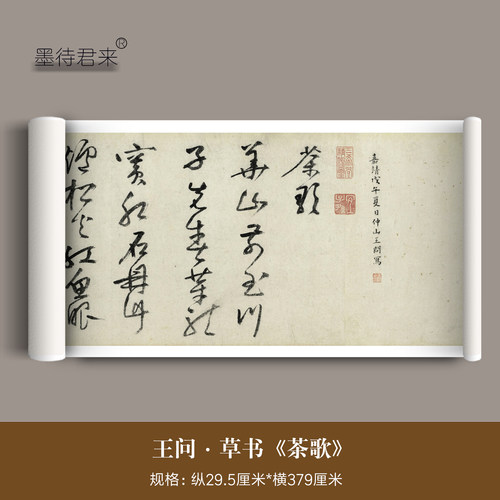 墨待君来®
嘉靖戊午夏日仲山王問寫
茶歌
山前玉川
子先春
石鼎
爐松火紅魚眼
王问·草书《茶歌》
规格:纵29.5厘米*横379厘米